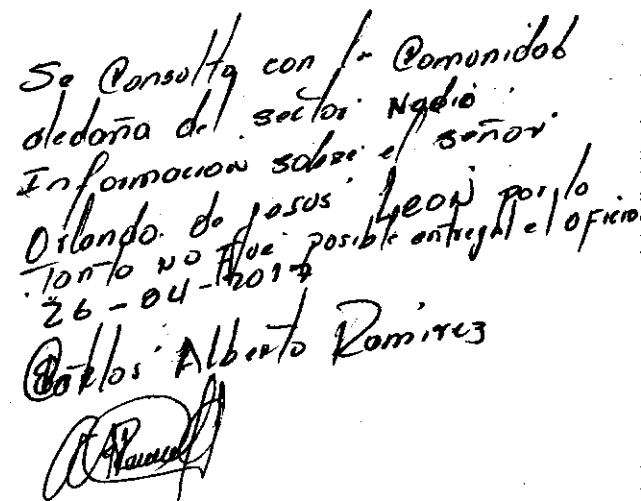 Se Consulta con la Comunidad
aledaña del sector Nadie
Informacion sobre el señor
Orlando de Jesus Leon por lo
Tanto no fue posible entregar el oficio.
26-04-2017
Carlos Alberto Ramirez